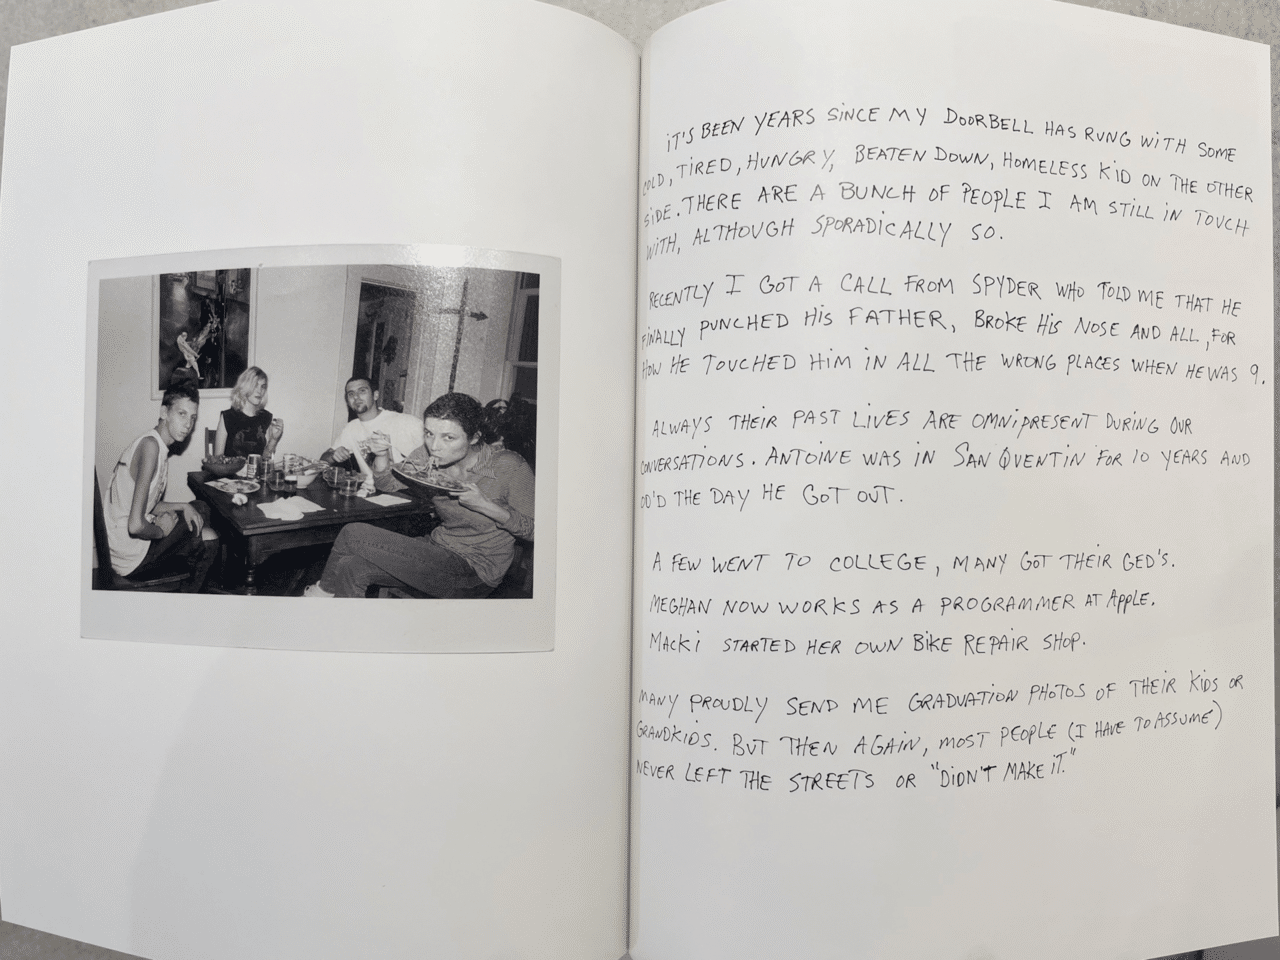 iT'S BEEN YEARS SINCE MY DOORBELL HAS RUNG WITH SOME
COLD, TIRED, HUNGRY, BEATEN DOWN, HOMELESS KID ON THE OTHER
SIDE. THERE ARE A BUNCH OF PEOPLE I AM STILL IN TOUCH
WITH, ALTHOUGH SPORADICALLY SO.
RECENTLY I GOT A CALL FROM SPYDER WHO TOLD ME THAT HE
FINALLY PUNCHED HIS FATHER, BROKE HIS NOSE AND ALL, FOR
HOW HE TOUCHED HIM IN ALL THE WRONG PLACES WHEN HE WAS 9.
ALWAYS THEIR PAST LIVES ARE OMNIPRESENT DURING OUR
CONVERSATIONS. ANTOINE WAS IN SAN QUENTIN FOR 10 YEARS AND
OD'D THE DAY HE GOT OUT.
A FEW WENT TO COLLEGE, MANY GOT THEIR GED'S.
MEGHAN NOW WORKS AS A PROGRAMMER AT APPLE.
MACKI STARTED HER OWN BIKE REPAIR SHOP.
MANY PROUDLY SEND ME GRADUATION PHOTOS OF THEIR KIDS OR
GRANDKIDS. BUT THEN AGAIN, MOST PEOPLE (I HAVE TO ASSUME)
NEVER LEFT THE STREETS OR "DIDN'T MAKE IT."